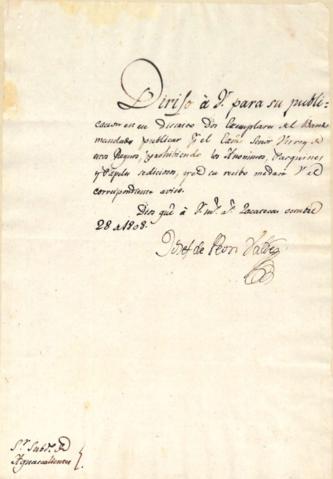 Dirijo à V. para su publi-
cacion en ese Distrito Dos Exemplares del Bando
mandado publicar p.r el Exmo Señor Virrey de
estos Reynos, prohibiendo los Anonimos, Pasquines
y Papeles sediciosos, y de su recibo me dará V. el
correspondiente aviso.
Dios gūe à V. m.s a.s Zacatecas
28 de 1808.
Josef de Peon Valdez
S.r Subd.o de
Aguascalientes